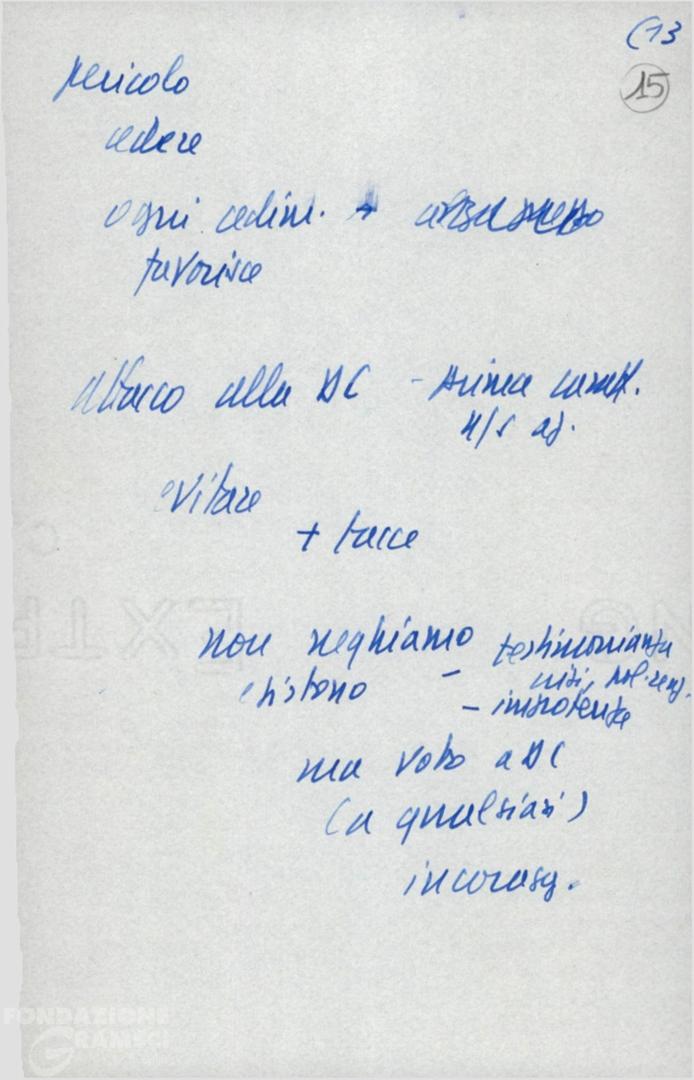 (13
15
pericolo
cedere
ogni cedim. →
favorisce
attacco alla DC - prima
4/5 a).
evitare
+ facce
non neghiamo - testimonianza
esistono
- impotenza
ma voto a DC
(a qualsiasi)
incoragg.
EXTRA
FONDAZIONE
GRAMSCI